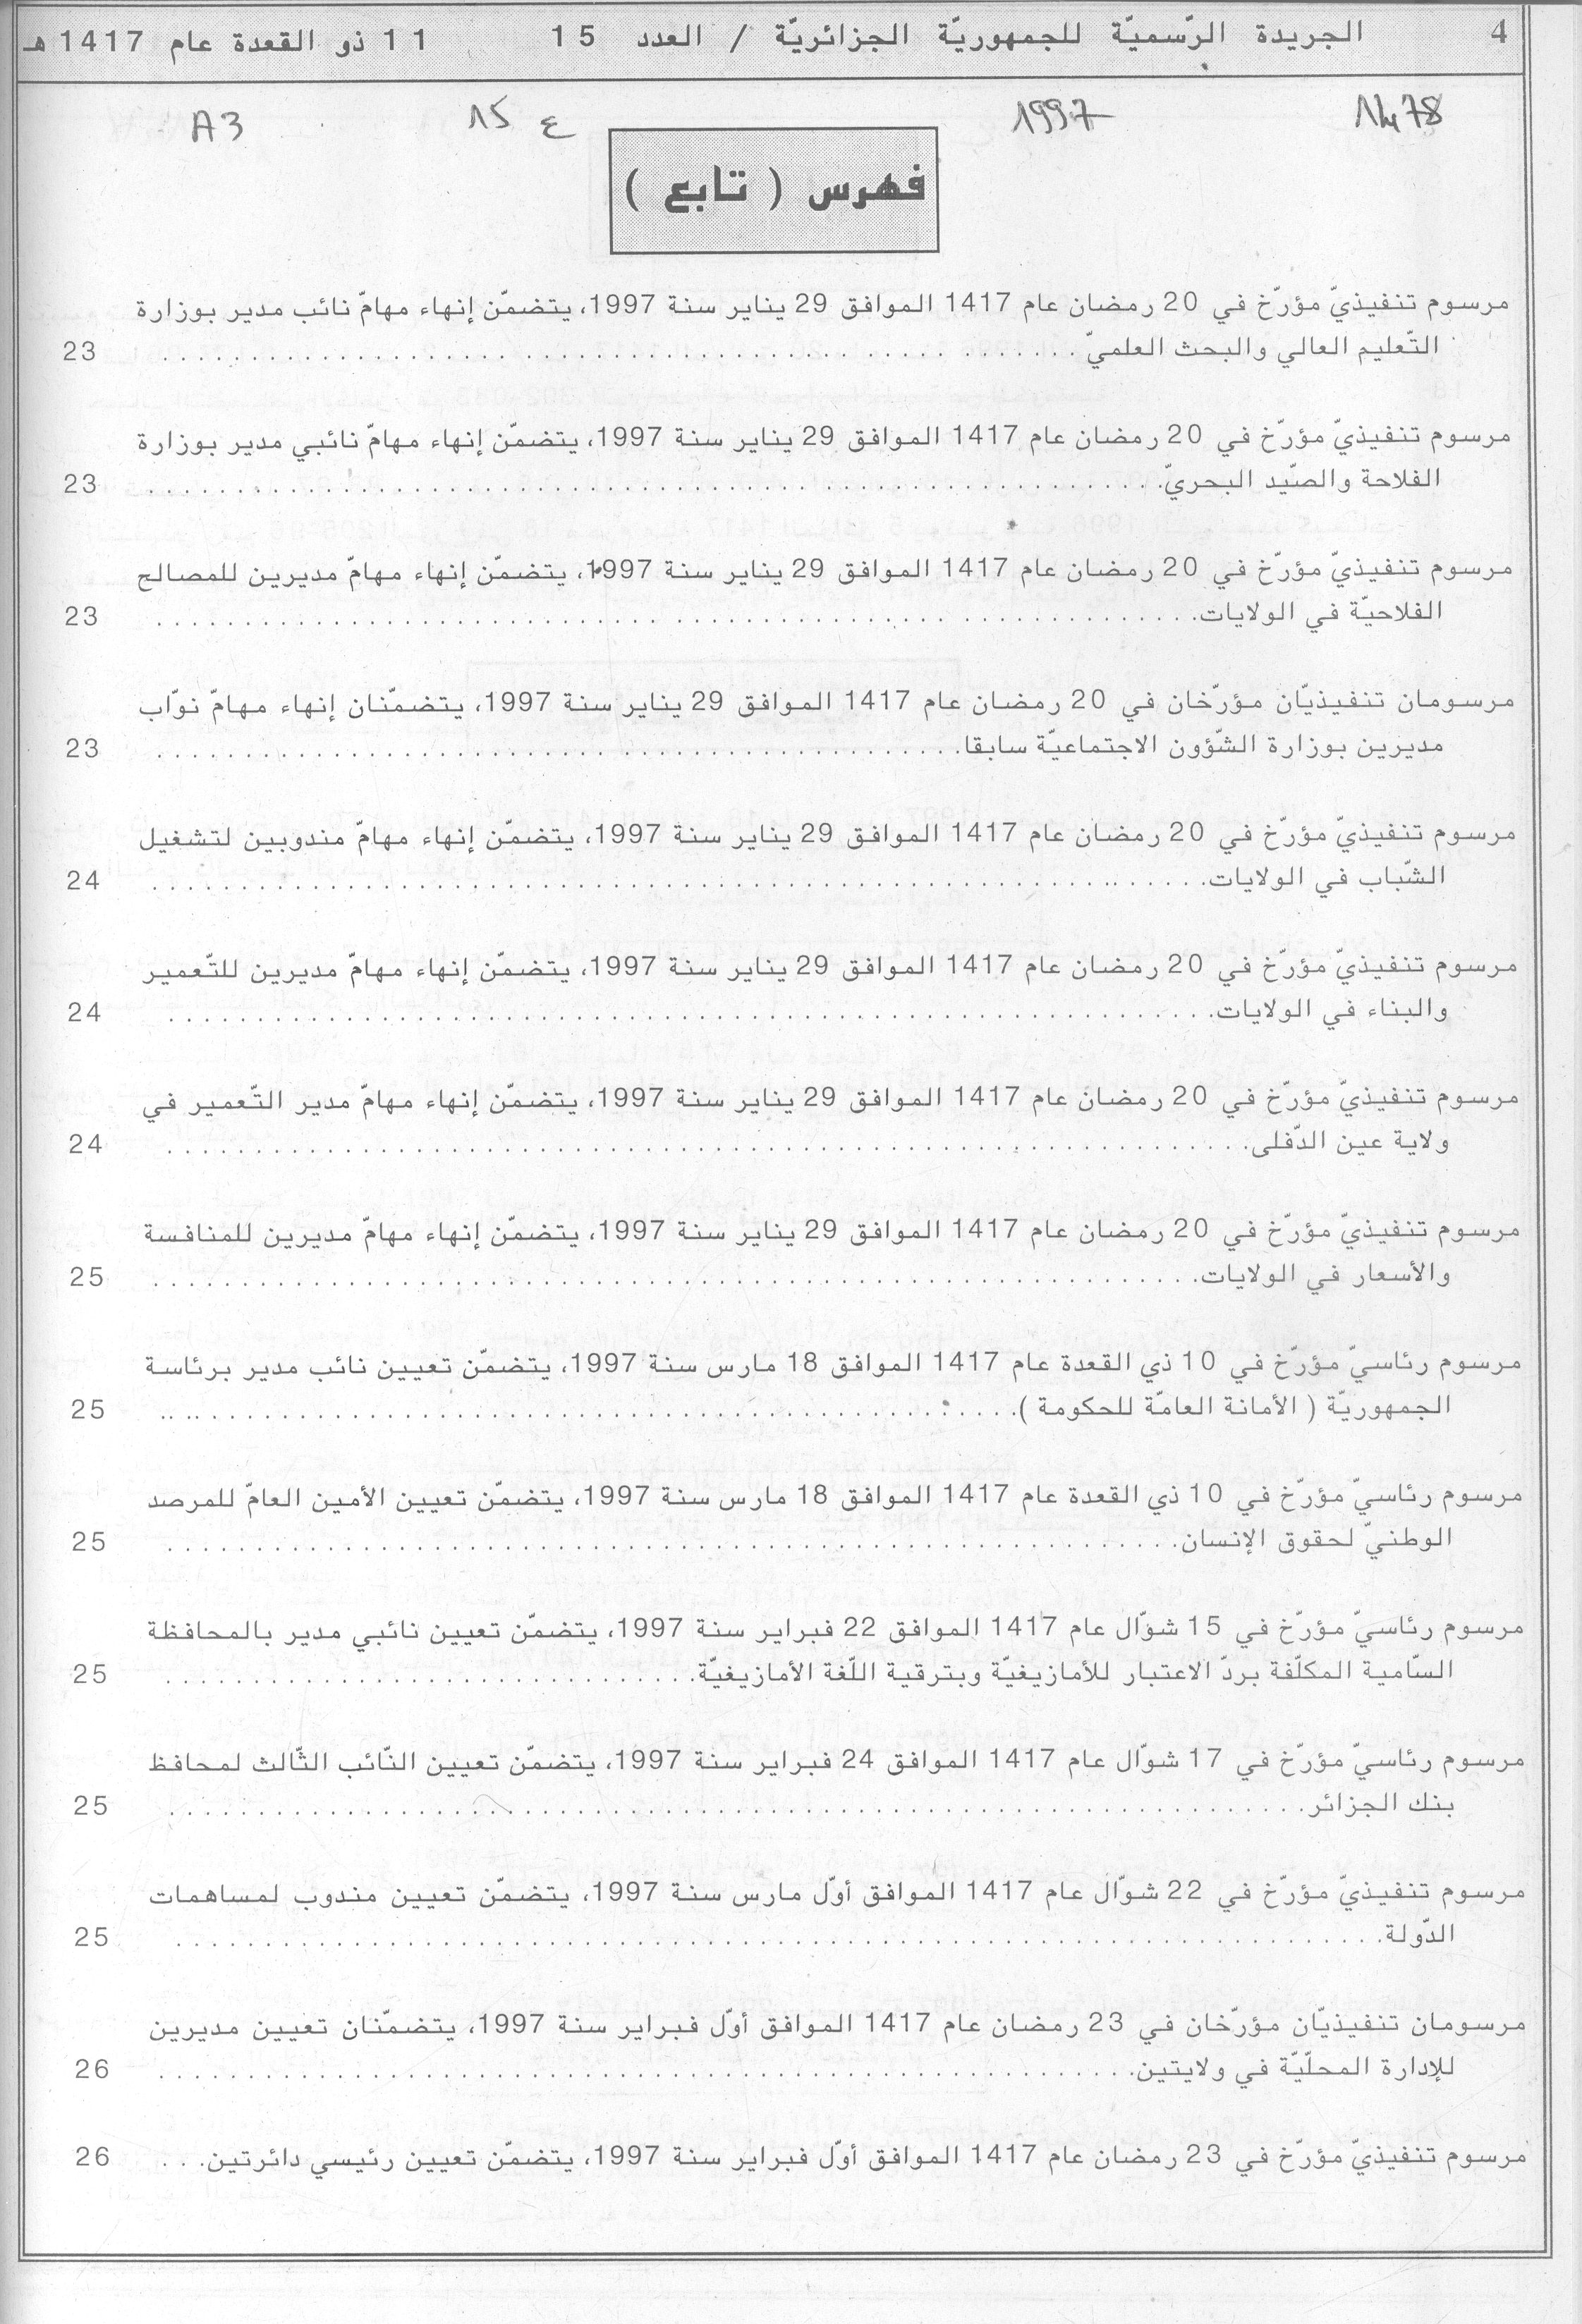 4 الجريدة الرّسميّة للجمهوريّة الجزائريّة / العدد 15 11 ذو القعدة عام 1417 هـ
1478 1997 ع 15 A3
فهرس ( تابع )
مرسوم تنفيذيّ مؤرّخ في 20 رمضان عام 1417 الموافق 29 يناير سنة 1997، يتضمّن إنهاء مهامّ نائب مدير بوزارة
التّعليم العالي والبحث العلميّ . . . . . . . . . . . . . . . . . . . . 23
مرسوم تنفيذيّ مؤرّخ في 20 رمضان عام 1417 الموافق 29 يناير سنة 1997، يتضمّن إنهاء مهامّ نائبي مدير بوزارة
الفلاحة والصّيد البحريّ. . . . . . . . . . . . . . . . . . . . . 23
مرسوم تنفيذيّ مؤرّخ في 20 رمضان عام 1417 الموافق 29 يناير سنة 1997، يتضمّن إنهاء مهامّ مديرين للمصالح
الفلاحيّة في الولايات. . . . . . . . . . . . . . . . . . . . . 23
مرسومان تنفيذيّان مؤرّخان في 20 رمضان عام 1417 الموافق 29 يناير سنة 1997، يتضمّنان إنهاء مهامّ نوّاب
مديرين بوزارة الشّؤون الاجتماعيّة سابقا. . . . . . . . . . . . . . . . . . . . . 23
مرسوم تنفيذيّ مؤرّخ في 20 رمضان عام 1417 الموافق 29 يناير سنة 1997، يتضمّن إنهاء مهامّ مندوبين لتشغيل
الشّباب في الولايات. . . . . . . . . . . . . . . . . . . . . 24
مرسوم تنفيذيّ مؤرّخ في 20 رمضان عام 1417 الموافق 29 يناير سنة 1997، يتضمّن إنهاء مهامّ مديرين للتّعمير
والبناء في الولايات. . . . . . . . . . . . . . . . . . . . . 24
مرسوم تنفيذيّ مؤرّخ في 20 رمضان عام 1417 الموافق 29 يناير سنة 1997، يتضمّن إنهاء مهامّ مدير التّعمير في
ولاية عين الدّفلى. . . . . . . . . . . . . . . . . . . . . 24
مرسوم تنفيذيّ مؤرّخ في 20 رمضان عام 1417 الموافق 29 يناير سنة 1997، يتضمّن إنهاء مهامّ مديرين للمنافسة
والأسعار في الولايات. . . . . . . . . . . . . . . . . . . . . 25
مرسوم رئاسيّ مؤرّخ في 10 ذي القعدة عام 1417 الموافق 18 مارس سنة 1997، يتضمّن تعيين نائب مدير برئاسة
الجمهوريّة ( الأمانة العامّة للحكومة ). . . . . . . . . . . . . . . . . . . . . 25
مرسوم رئاسيّ مؤرّخ في 10 ذي القعدة عام 1417 الموافق 18 مارس سنة 1997، يتضمّن تعيين الأمين العامّ للمرصد
الوطنيّ لحقوق الإنسان. . . . . . . . . . . . . . . . . . . . . 25
مرسوم رئاسيّ مؤرّخ في 15 شوّال عام 1417 الموافق 22 فبراير سنة 1997، يتضمّن تعيين نائبي مدير بالمحافظة
السّامية المكلّفة بردّ الاعتبار للأمازيغيّة وبترقية اللّغة الأمازيغيّة. . . . . . . . . . . . . . . . . . . . . 25
مرسوم رئاسيّ مؤرّخ في 17 شوّال عام 1417 الموافق 24 فبراير سنة 1997، يتضمّن تعيين النّائب الثّالث لمحافظ
بنك الجزائر. . . . . . . . . . . . . . . . . . . . . 25
مرسوم تنفيذيّ مؤرّخ في 22 شوّال عام 1417 الموافق أوّل مارس سنة 1997، يتضمّن تعيين مندوب لمساهمات
الدّولة. . . . . . . . . . . . . . . . . . . . . 25
مرسومان تنفيذيّان مؤرّخان في 23 رمضان عام 1417 الموافق أوّل فبراير سنة 1997، يتضمّنان تعيين مديرين
للإدارة المحلّيّة في ولايتين. . . . . . . . . . . . . . . . . . . . . 26
مرسوم تنفيذيّ مؤرّخ في 23 رمضان عام 1417 الموافق أوّل فبراير سنة 1997، يتضمّن تعيين رئيسي دائرتين. . . 26